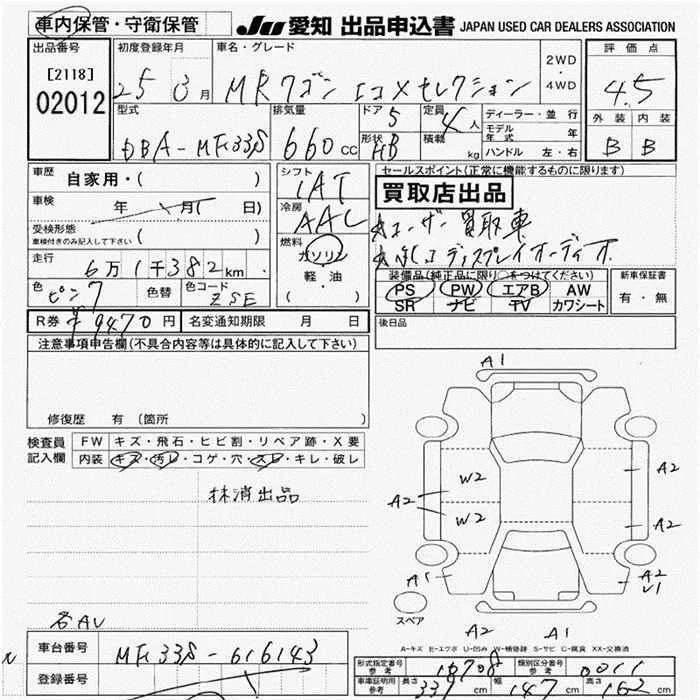 車内保管・守衛保管 JU 愛知 出品申込書 JAPAN USED CAR DEALERS ASSOCIATION
出品番号 初度登録年月 車名・グレード 評価点
[2118] 25 3月 MRワゴン エコXセレクション 2WD・4WD 4.5
02012
型式 排気量 ドア 5 定員 4人 ディーラー・並行 外装 内装
モデル年式 年
DBA-MF33S 660cc 形状 HB 積載 kg ハンドル 左・右 B B
車歴 自家用・( ) シフト IAT セールスポイント(正常に機能するものに限ります)
買取店出品
車検 年 月( 日) 冷房 AAC
ユーザー買取車
受検形態 ( )
車検付きのみ記入して下さい
燃料 ガソリン・軽油・( )
ディスプレイオーディオ
走行 6万1千382km
装備品(純正品に限り○をつけてください) 新車保証書
色 ピンク 色替 色コード ZSE
PS PW エアB AW 有・無
SR ナビ TV カワシート
R券 ¥9470円 名変通知期限 月 日 後日品
注意事項申告欄(不具合内容等は具体的に記入して下さい)
修復歴 有 (箇所 )
検査員記入欄 FW キズ・飛石・ヒビ割・リペア跡・X要
内装 キズ・汚レ・コゲ・穴・スレ・キレ・破レ
抹消出品
A1
W2 A2
A2 W2 A2
A1 A2
スペア
A2 A1
A-キズ E-エクボ U-凹み W-補修跡 S-サビ C-腐食 XX-交換済
車台番号 MF33S-616143
登録番号
形式指定番号 参考 16708 類別区分番号 参考 0011
車庫証明用 参考 長さ 339cm 幅 147cm 高さ 162cm